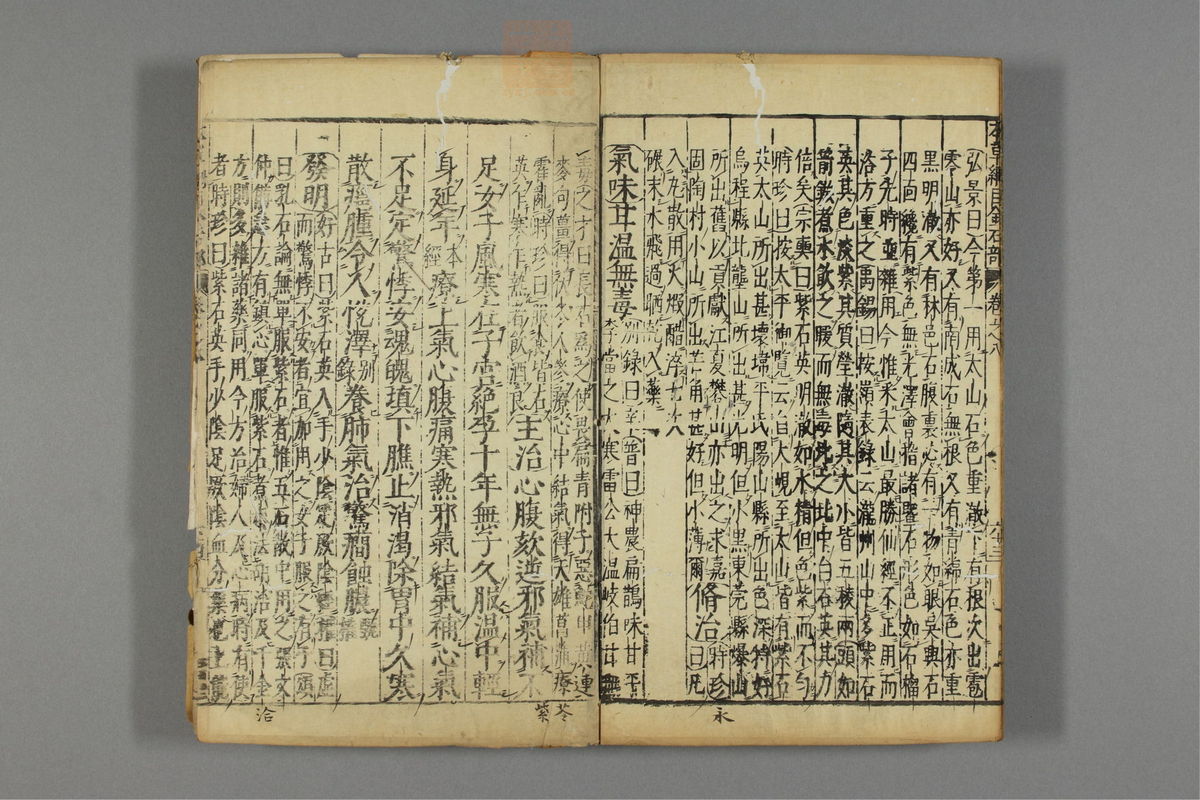 本草綱目金石部 卷之八
弘景曰今第一用太山石色重澈下有根次出雹
零山亦好又有南成石無根又有青綿石色亦重
黑明澈又有林邑石腹裏必有一物如眼吳興石
四面纔有紫色無光澤會稽諸暨石形色如石榴
子先時並雜用今惟采太山最勝仙經不正用而
俗方重之禹錫曰按嶺表錄云瀧州山中多紫石
英其色淡紫其質瑩澈隨其大小皆五稜兩頭如
箭鏃煮水飲之暖而無毒比之北中白石英其力
倍矣宗奭曰紫石英明澈如水精但色紫而不勻
時珍曰按太平御覽云自大峴至太山皆有紫石
英太山所出甚瓌瑋平氏陽山縣所出色深特好
烏程縣北壟山所出甚光明但小黑東莞縣爆山
所出舊以貢獻江夏礬山亦出之永嘉
固陶村小山所出芒角甚好但小薄爾
脩治時珍曰凡
入丸散用火煅醋淬七次
碾末水飛過晒乾入藥
氣味甘溫無毒
別錄曰辛普曰神農扁鵲味甘平
李當之大寒雷公大溫岐伯甘無
永
毒之才曰長石為之使畏扁青附子惡鮀甲黃連
麥句薑得茯苓人參療心中結氣得天雄菖蒲療
霍亂時珍曰服食紫石
英乍寒乍熱者飲酒良
主治心腹欬逆邪氣補不
足女子風寒在子宮絕孕十年無子久服溫中輕
身延年本經療上氣心腹痛寒熱邪氣結氣補心氣
不足定驚悸安魂魄填下膲止消渴除胃中久寒
散癰腫令人悅澤別錄養肺氣治驚癎蝕膿甄權
發明好古曰紫石英入手少陰足厥陰經權曰虛
而驚悸不安者宜加用之女子服之有子頌
曰乳石論無單服紫石者惟五石散中用之張文
仲備急方有鎮心單服紫石煮水法胡洽及千金
方則多雜諸藥同用今方治婦人及心病時有使
者時珍曰紫石英手少陰足厥陰血分藥也上實
苓
紫
洽